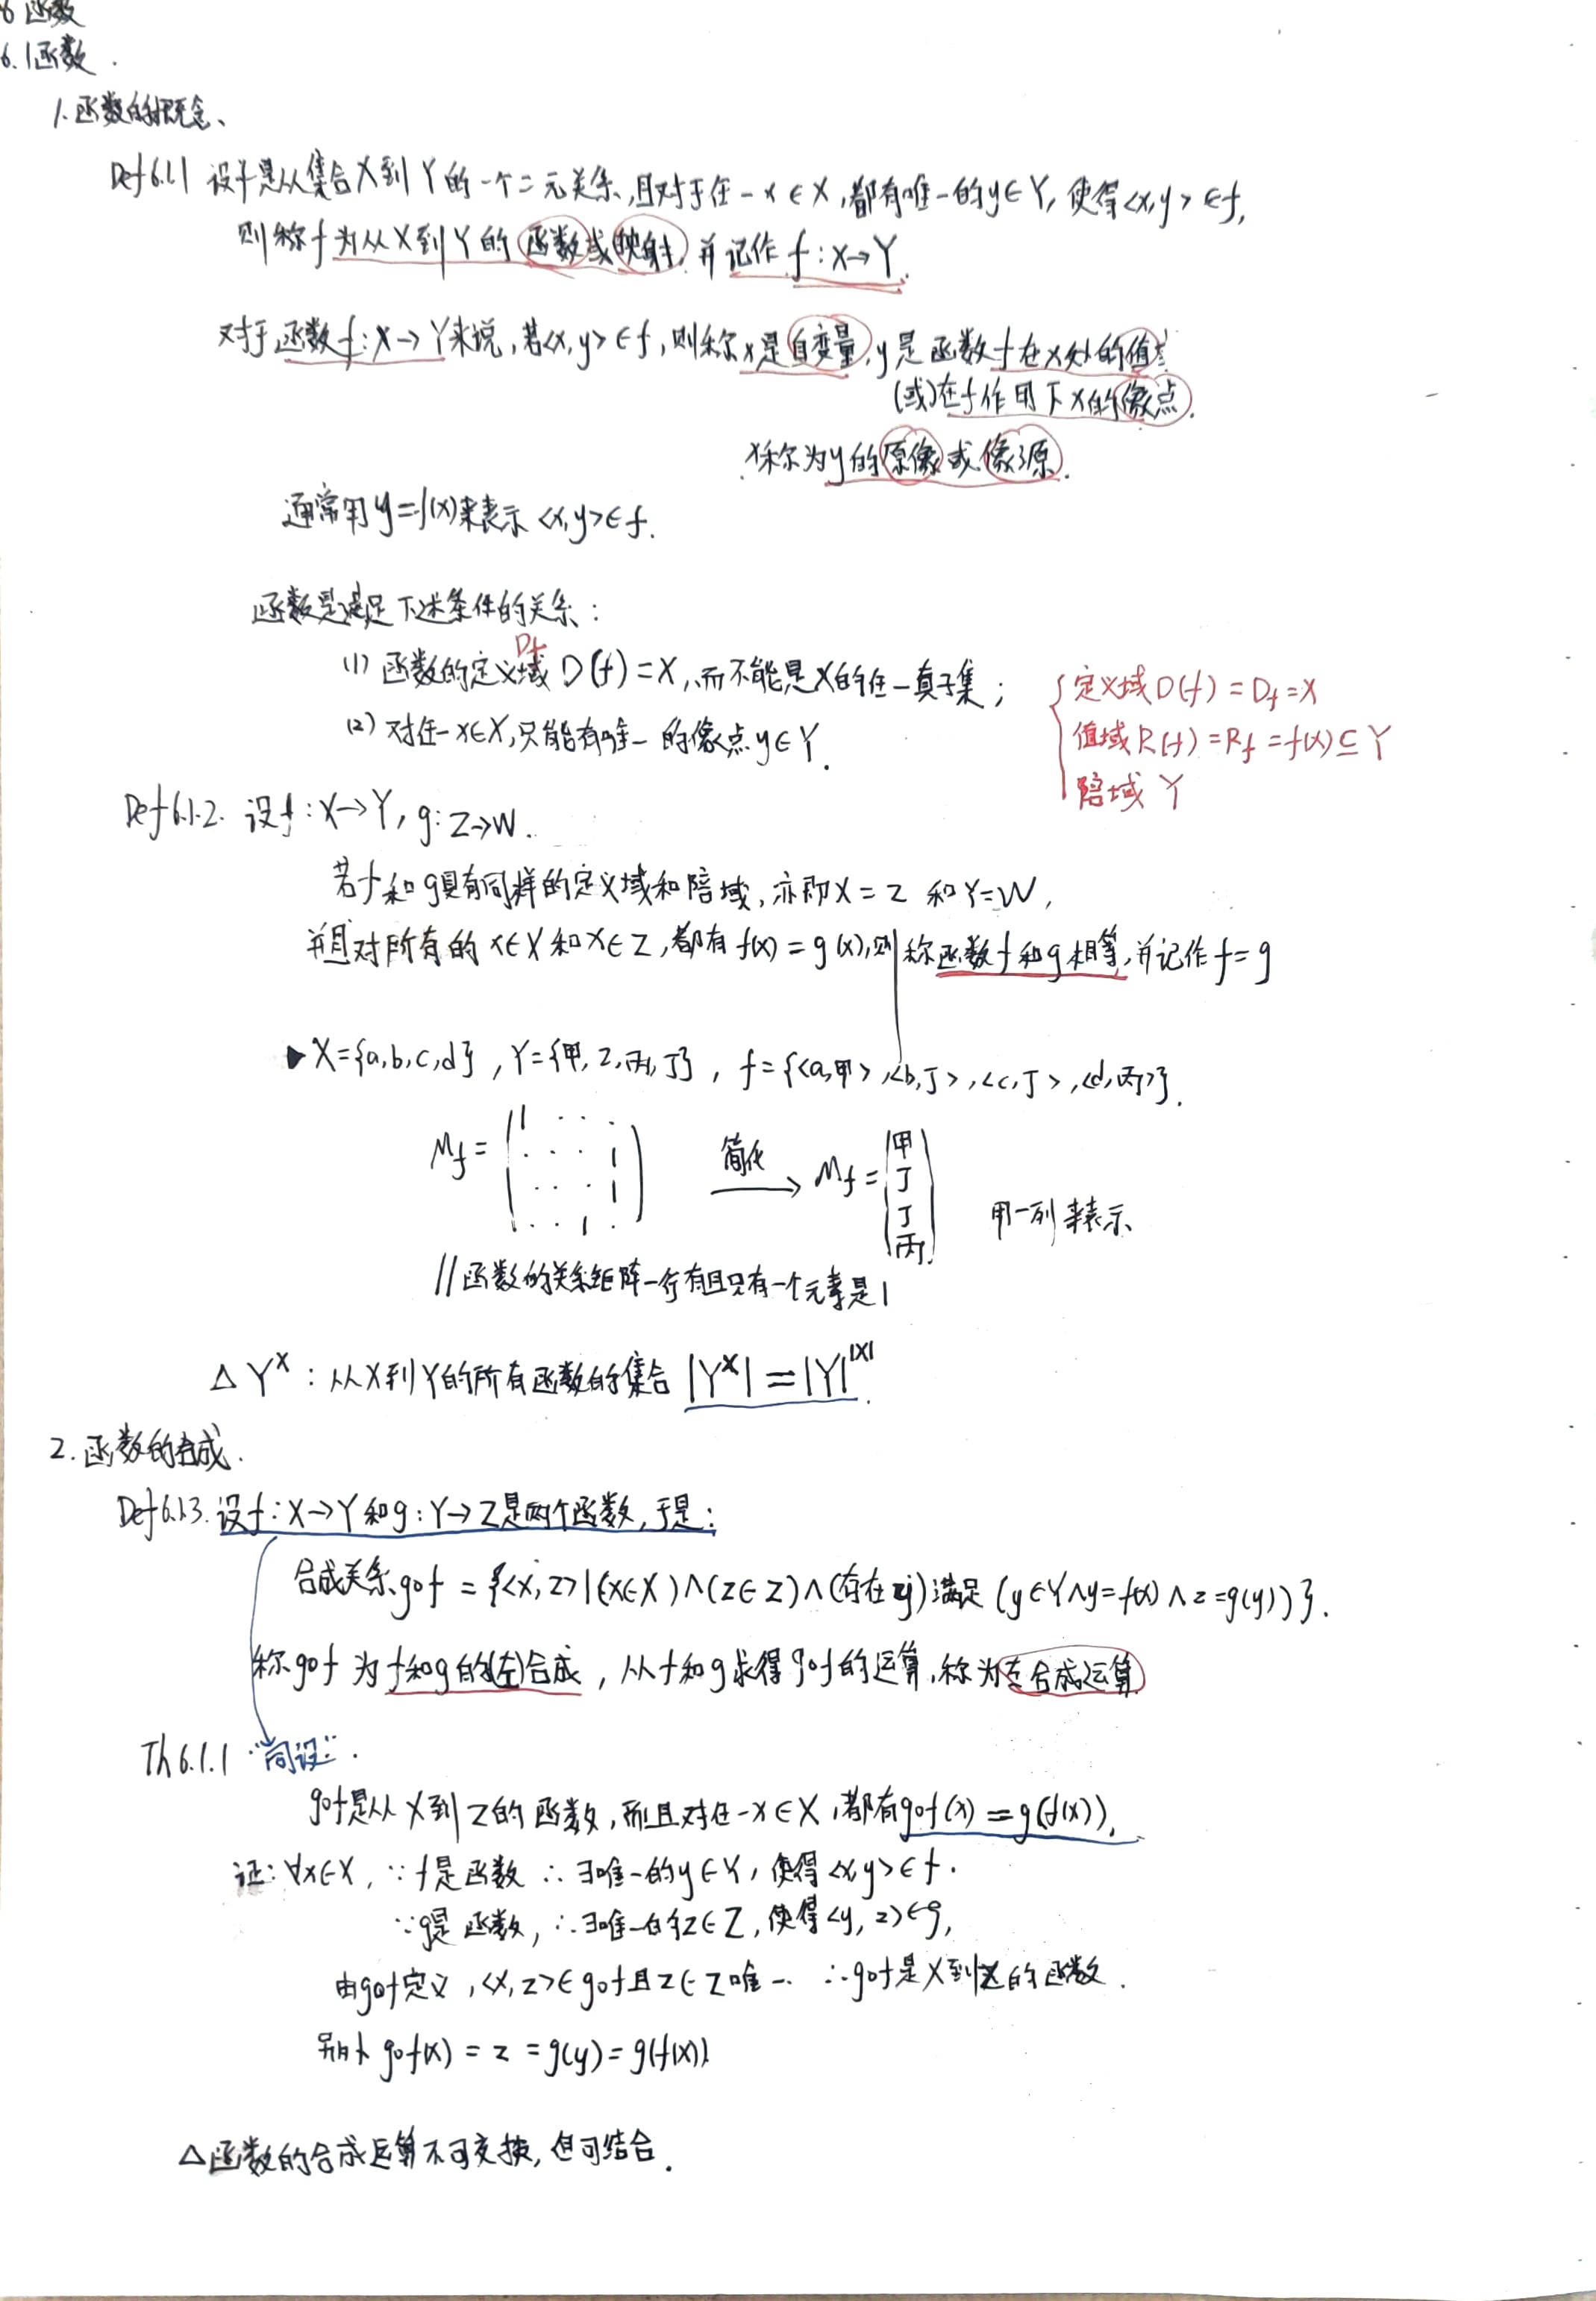 6 函数
6.1函数.
1.函数的概念、
Def6.1.1 设f是从集合X到Y的一个二元关系,且对于任一x∈X,都有唯一的y∈Y,使得<x,y>∈f,
则称f为从X到Y的函数或映射,并记作f:X→Y.
对于函数f:X→Y来说,若<x,y>∈f,则称x是自变量,y是函数f在x处的值;
(或)在f作用下x的像点.
x称为y的原像或像源.
通常用y=f(x)来表示<x,y>∈f.
函数是满足下述条件的关系:
Df
(1) 函数的定义域D(f)=X,而不能是X的任一真子集;
(2) 对任一x∈X,只能有唯一的像点y∈Y.
定义域D(f)=Df=X
值域R(f)=Rf=f(X)⊆Y
陪域Y
Def6.1.2. 设f:X→Y, g:Z→W.
若f和g具有同样的定义域和陪域,亦即X=Z 和Y=W,
并且对所有的x∈X和x∈Z,都有f(x)=g(x),则称函数f和g相等,并记作f=g
▶X={a,b,c,d}, Y={甲,乙,丙,丁}, f={<a,甲>,<b,丁>,<c,丁>,<d,丙>}.
Mf= 1 · · · 简化 Mf= 甲
· · · 1 丁
· · · 1 丁 用一列来表示
· · 1 · 丙
//函数的关系矩阵一行有且只有一个元素是1
△ Y^X:从X到Y的所有函数的集合 |Y^X|=|Y|^|X|.
2.函数的合成.
Def6.1.3.设f:X→Y和g:Y→Z是两个函数,于是:
合成关系g∘f={<x,z>|(x∈X)∧(z∈Z)∧(存在y)满足(y∈Y∧y=f(x)∧z=g(y))}.
称g∘f为f和g的(左)合成,从f和g求得g∘f的运算,称为左合成运算
Th6.1.1 "同设".
g∘f是从X到Z的函数,而且对任一x∈X,都有g∘f(x)=g(f(x)).
证:∀x∈X,∵f是函数 ∴∃唯一的y∈Y,使得<x,y>∈f.
∵g是函数,∴∃唯一的z∈Z,使得<y,z>∈g,
由g∘f定义,<x,z>∈g∘f且z∈Z唯一. ∴g∘f是X到Z的函数.
另外 g∘f(x)=z=g(y)=g(f(x))
△函数的合成运算不可交换,但可结合.